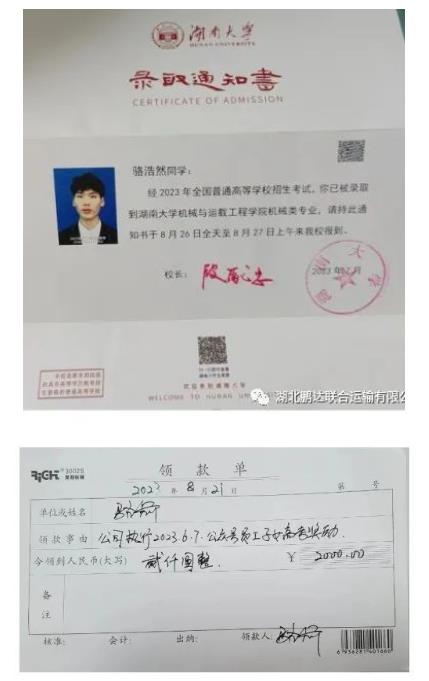 湖南大学
HUNAN UNIVERSITY
录取通知书
CERTIFICATE OF ADMISSION
骆浩然同学:
经2023年全国普通高等学校招生考试,你已被录取
到湖南大学机械与运载工程学院机械类专业,请持此通
知书于8月26日全天至8月27日上午来我校报到。
校长:
2023年7月
欢迎来到湖南大学
WELCOME TO HUNAN UNI
湖北鹏达联合运输有限公
RIGHT 3002S
领款单
2023年8月21日 第 号
单位或姓名
领款事由 公司执行2023.6.7.公众号员工子女高考奖励.
今领到人民币(大写) 贰仟圆整. ¥ 2000.00
备
注
核准: 会计: 出纳: 领款人:
6 936281 401666